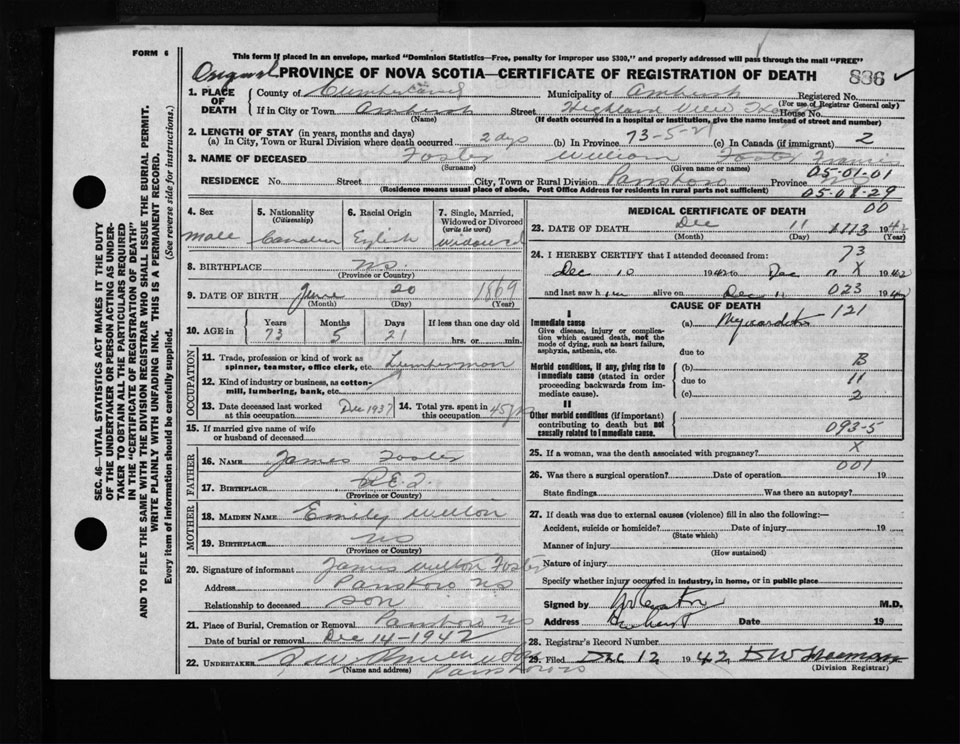 FORM 6
This form if placed in an envelope, marked "Dominion Statistics—Free, penalty for improper use $300," and properly addressed will pass through the mail "FREE"
Original PROVINCE OF NOVA SCOTIA—CERTIFICATE OF REGISTRATION OF DEATH 836
1. PLACE OF DEATH County of Cumberland Municipality of Amherst Registered No.
(For use of Registrar General only)
If in City or Town Amherst Street Highland View House No.
(Name) (If death occurred in a hospital or institution, give the name instead of street and number)
2. LENGTH OF STAY (in years, months and days)
(a) In City, Town or Rural Division where death occurred 2 days (b) In Province 73-5-21 (c) In Canada (if immigrant) 2
3. NAME OF DECEASED Foster William Foster Francis
(Surname) (Given name or names) 05-01-01
RESIDENCE No. Street City, Town or Rural Division Parrsboro Province
(Residence means usual place of abode. Post Office Address for residents in rural parts not sufficient) 05-08-29
00
4. Sex Male
5. Nationality (Citizenship) Canadian
6. Racial Origin English
7. Single, Married, Widowed or Divorced (write the word) Widowed
8. BIRTHPLACE NS.
(Province or Country)
9. DATE OF BIRTH June 20 1869
(Month) (Day) (Year)
10. AGE in Years Months Days If less than one day old
73 5 21 hrs. or min.
OCCUPATION
11. Trade, profession or kind of work as spinner, teamster, office clerk, etc. Lumberman
12. Kind of industry or business, as cotton-mill, lumbering, bank, etc.
13. Date deceased last worked at this occupation Dec 1937
14. Total yrs. spent in this occupation 45 yrs
15. If married give name of wife or husband of deceased
FATHER
16. NAME James Foster
17. BIRTHPLACE P.E.I.
(Province or Country)
MOTHER
18. MAIDEN NAME Emily Welton
19. BIRTHPLACE NS
(Province or Country)
20. Signature of informant James Welton Foster
Address Parrsboro NS
Relationship to deceased Son
21. Place of Burial, Cremation or Removal Parrsboro NS
Date of burial or removal Dec 14-1942
22. UNDERTAKER
(Name and address) Parrsboro NS
MEDICAL CERTIFICATE OF DEATH
23. DATE OF DEATH Dec 11 1113 1942
(Month) (Day) (Year)
24. I HEREBY CERTIFY that I attended deceased from: 73
Dec 10 1942 to Dec 11 X 1942
and last saw him alive on Dec 11 023 1942
CAUSE OF DEATH
I
Immediate cause
Give disease, injury or complication which caused death, not the mode of dying, such as heart failure, asphyxia, asthenia, etc.
(a) Myocarditis 121
due to
Morbid conditions, if any, giving rise to immediate cause (stated in order proceeding backwards from immediate cause).
(b) B
due to 11
(c) 2
II
Other morbid conditions (if important) contributing to death but not causally related to immediate cause.
093-5
25. If a woman, was the death associated with pregnancy? X
001
26. Was there a surgical operation? Date of operation 19
State findings Was there an autopsy?
27. If death was due to external causes (violence) fill in also the following:—
Accident, suicide or homicide? Date of injury 19
(State which)
Manner of injury
(How sustained)
Nature of injury
Specify whether injury occurred in industry, in home, or in public place
Signed by M.D.
Address Amherst Date 19
28. Registrar's Record Number
29. Filed Dec 12 1942
(Division Registrar)
SEC. 46—VITAL STATISTICS ACT MAKES IT THE DUTY
OF THE UNDERTAKER OR PERSON ACTING AS UNDER-
TAKER TO OBTAIN ALL THE PARTICULARS REQUIRED
IN THE "CERTIFICATE OF REGISTRATION OF DEATH"
AND TO FILE THE SAME WITH THE DIVISION REGISTRAR WHO SHALL ISSUE THE BURIAL PERMIT.
WRITE PLAINLY WITH UNFADING INK. THIS IS A PERMANENT RECORD.
Every item of information should be carefully supplied. (See reverse side for instructions.)